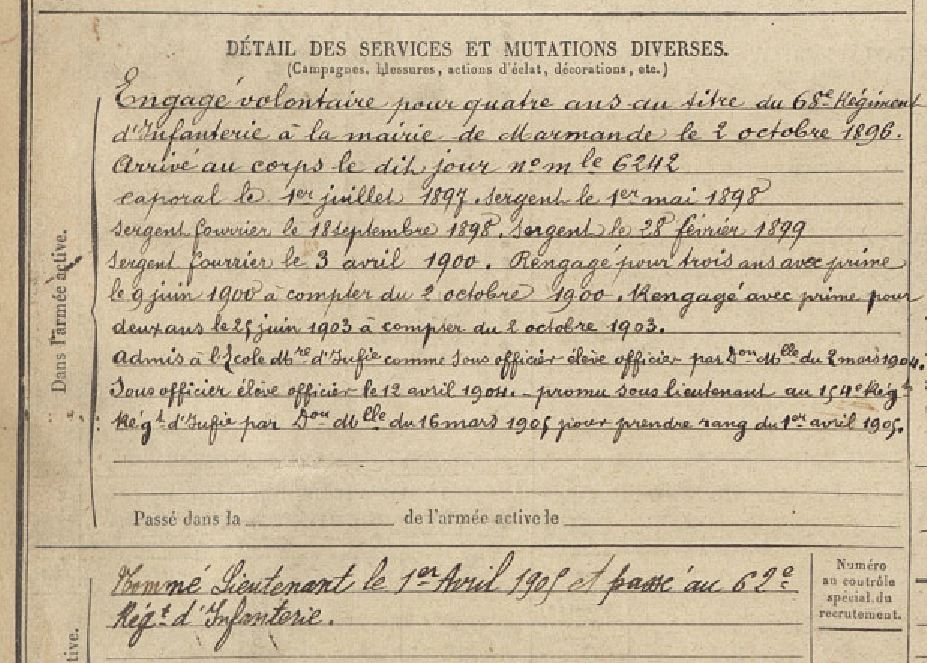 DÉTAIL DES SERVICES ET MUTATIONS DIVERSES.
(Campagnes, blessures, actions d'éclat, décorations, etc.)
Engagé volontaire pour quatre ans au titre du 68e Régiment
d'Infanterie à la mairie de Marmande le 2 octobre 1896.
Arrivé au corps le dit jour no mle 6242
caporal le 1er juillet 1897. sergent le 1er mai 1898
sergent fourrier le 18 septembre 1898. sergent le 28 février 1899
sergent fourrier le 3 avril 1900. Rengagé pour trois ans avec prime
le 9 juin 1900 à compter du 2 octobre 1900. Rengagé avec prime pour
deux ans le 25 juin 1903 à compter du 2 octobre 1903.
Admis à l'Ecole Mre d'Infie comme Sous officier élève officier par Don Mlle du 2 mars 1904.
Sous officier élève officier le 12 avril 1904. - promu sous lieutenant au 154e Régt
Régt d'Infie par Don Mlle du 16 mars 1905 pour prendre rang du 1er avril 1905.
Dans l'armée active.
Passé dans la de l'armée active le
Nommé Lieutenant le 1er Avril 1905 et passé au 62e
Régt d'Infanterie.
Numéro
au contrôle
spécial du
recrutement.
tive.